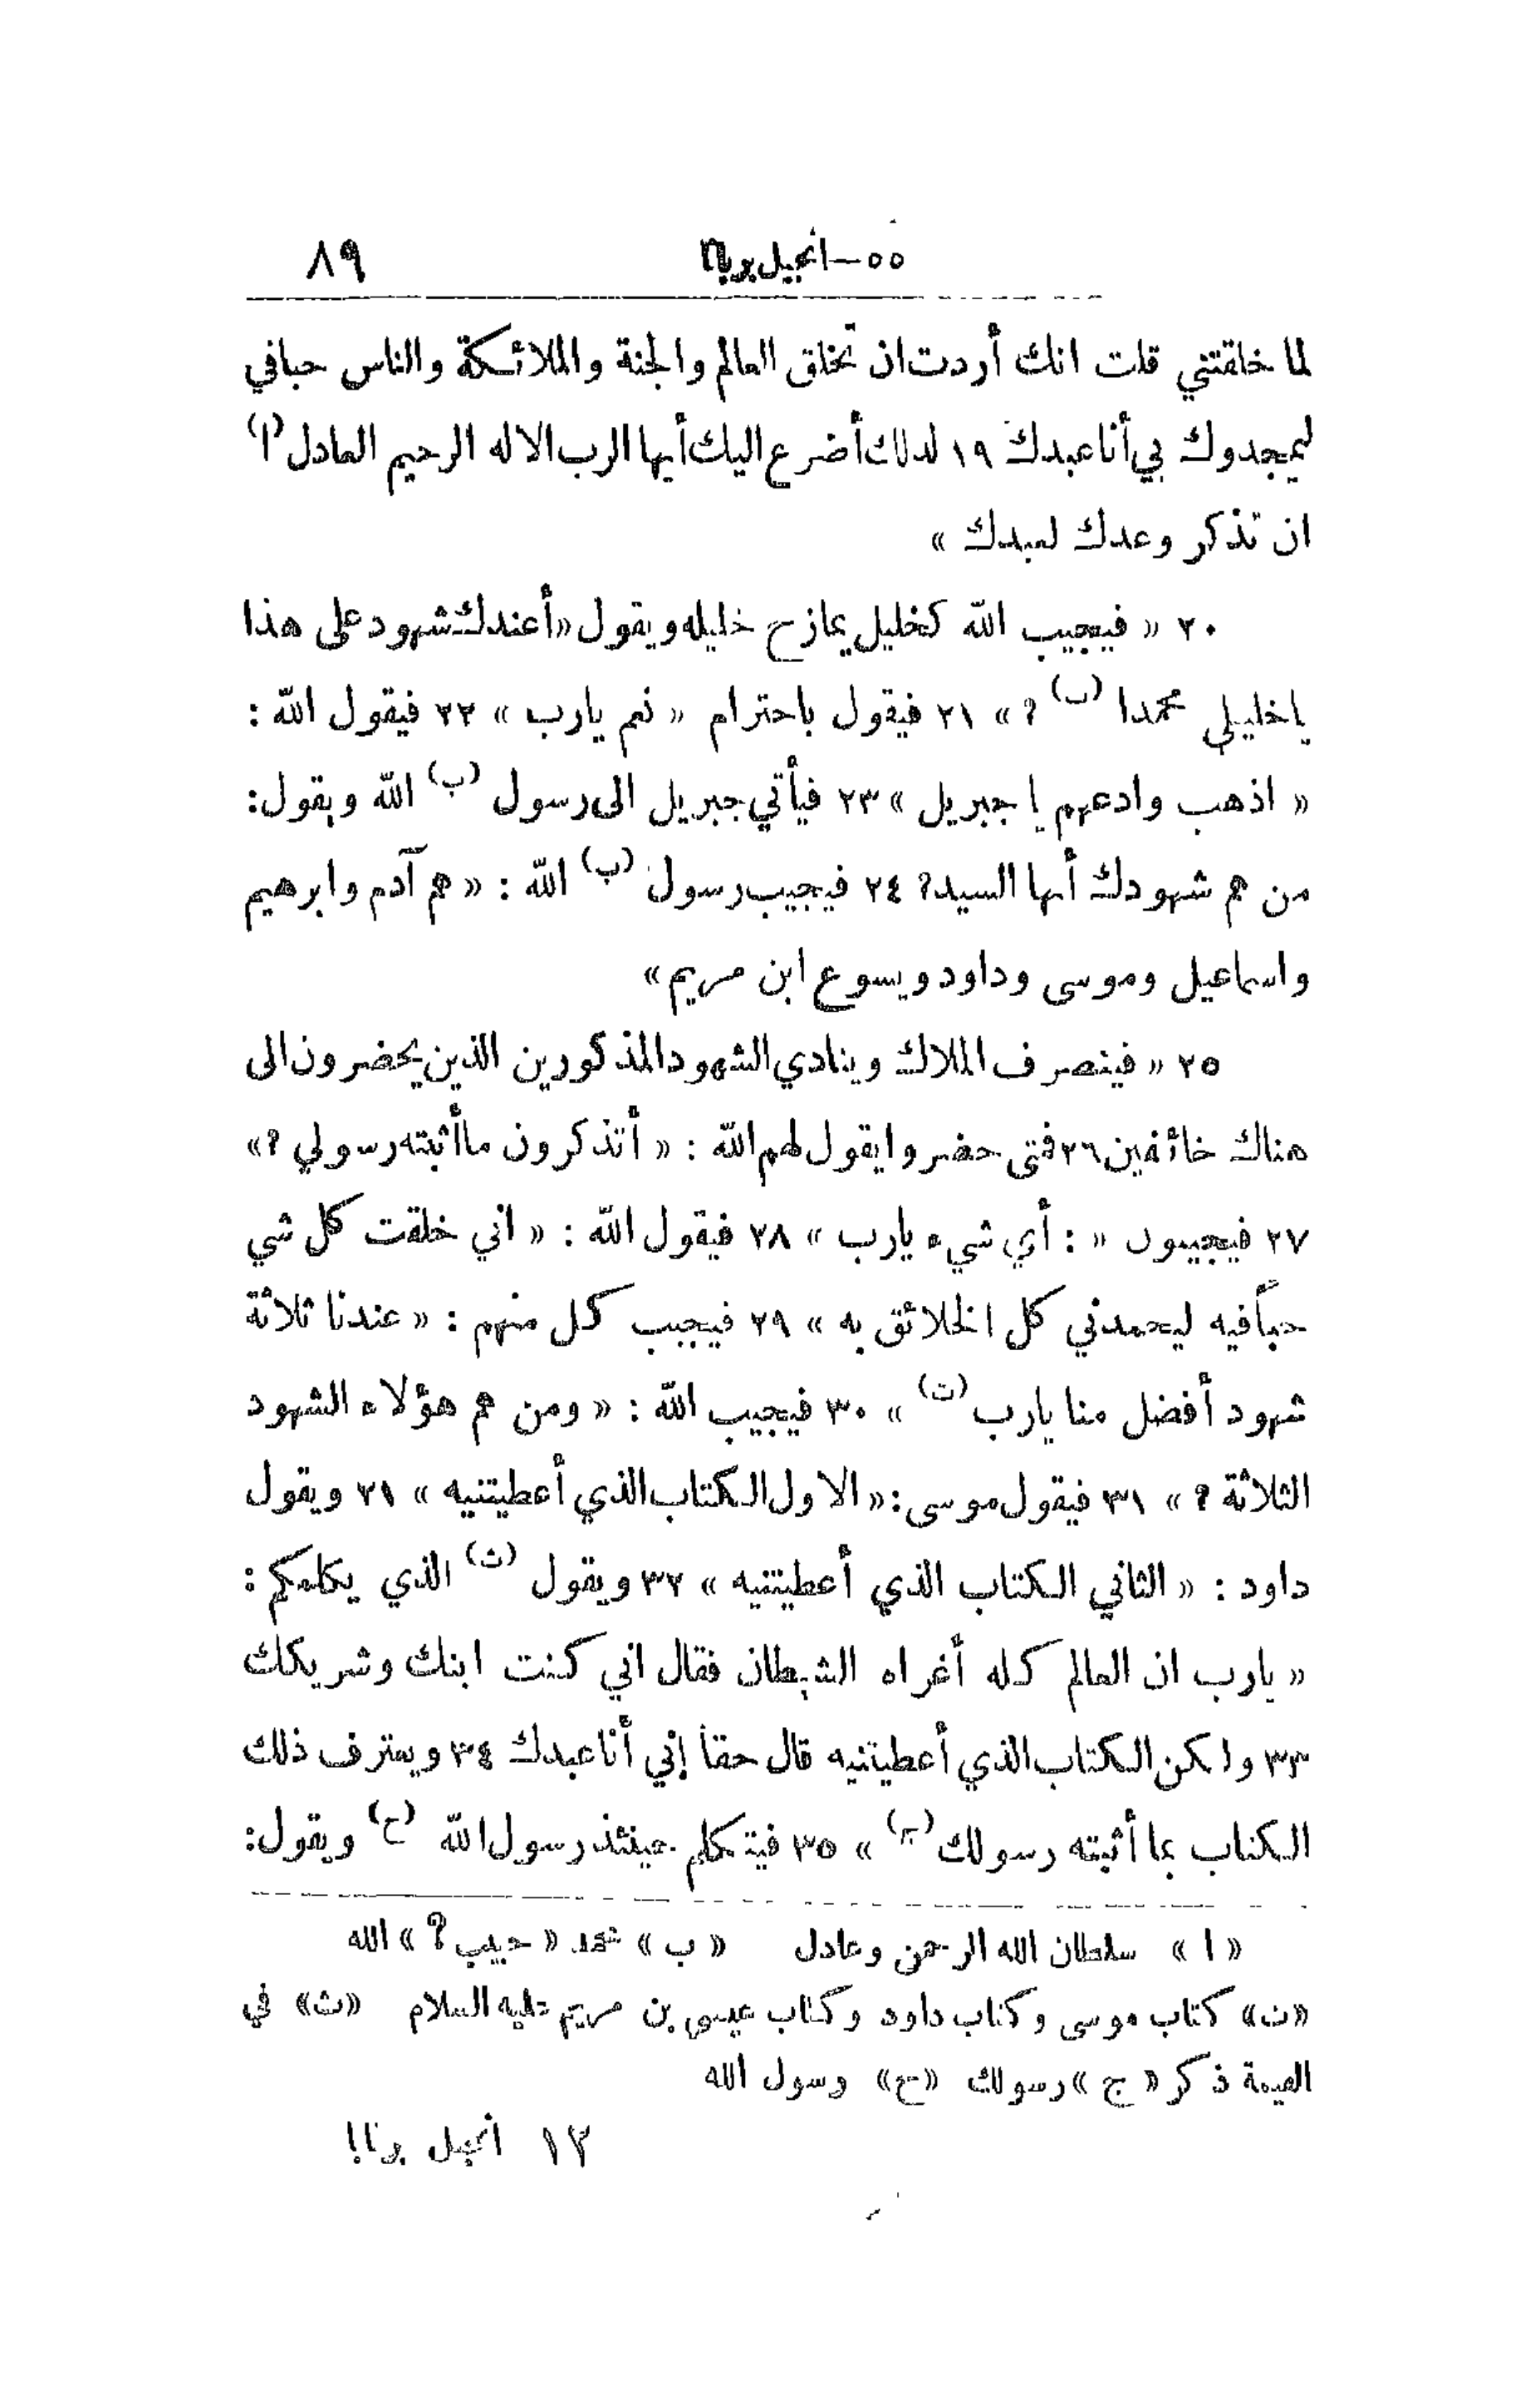 ٥٥ — انجيل برنابا ٨٩
لما خلقتني قلت انك أردت ان تخلق العالم والجنة والملائكة والناس حبا في
ليمجدوك بي أنا عبدك ١٩ لذلك أضرع اليك أيها الرب الاله الرحيم العادل (ا)
ان تذكر وعدك لعبدك »
٢٠ « فيجيب الله كخليل يمازح خليله ويقول « أعندك شهود على هذا
يا خليلي محمدا (ب) ؟ » ٢١ فيقول باحترام « نعم يارب » ٢٢ فيقول الله :
« اذهب وادعهم يا جبريل » ٢٣ فيأتي جبريل الى رسول (ب) الله ويقول:
من هم شهودك أيها السيد؟ ٢٤ فيجيب رسول (ب) الله : « هم آدم وابرهيم
واسماعيل وموسى وداود ويسوع ابن مريم »
٢٥ « فينصرف الملاك وينادي الشهود المذكورين الذين يحضرون الى
هناك خائفين ٢٦ فمتى حضروا يقول لهم الله : « أتذكرون ما أثبته رسولي ؟ »
٢٧ فيجيبون « : أي شيء يارب » ٢٨ فيقول الله : « اني خلقت كل شي
حباً فيه ليحمدني كل الخلائق به » ٢٩ فيجيب كل منهم : « عندنا ثلاثة
شهود أفضل منا يارب (ت) » ٣٠ فيجيب الله : « ومن هم هؤلاء الشهود
الثلاثة ؟ » ٣١ فيقول موسى : « الاول الكتاب الذي أعطيتنيه » ٣١ ويقول
داود : « الثاني الكتاب الذي أعطيتنيه » ٣٢ ويقول (ث) الذي يكلمكم :
« يارب ان العالم كله أغراه الشيطان فقال اني كنت ابنك وشريكك
٣٣ ولكن الكتاب الذي أعطيتنيه قال حقا إني أنا عبدك ٣٤ ويعترف ذلك
الكتاب بما أثبته رسولك (ج) » ٣٥ فيتكلم حينئذ رسول الله (ح) ويقول:
« ا » سلطان الله الرحمن وعادل « ب » محمد « حبيب ؟ » الله
«ت» كتاب موسى وكتاب داود وكتاب عيسى بن مريم عليه السلام «ث» في
القيمة ذكر « ج » رسولك «ح» رسول الله
١٢ انجيل برنابا